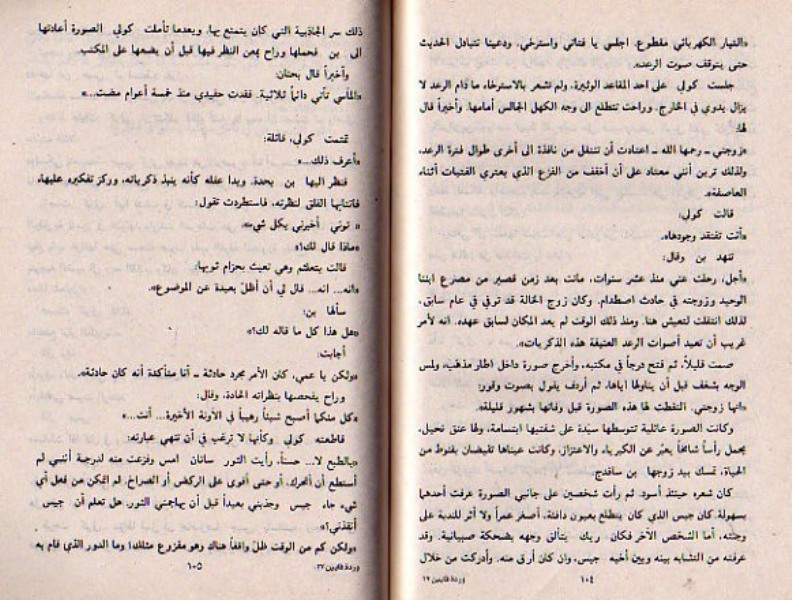 «التيار الكهربائي مقطوع. اجلسي يا فتاتي واسترخي، ودعينا نتبادل الحديث
حتى يتوقف صوت الرعد».
جلست كولي على احد المقاعد الوثيرة، ولم تشعر بالاسترخاء ما دام الرعد لا
يزال يدوي في الخارج، وراحت تتطلع الى وجه الكهل الجالس أمامها. وأخيراً قال
لها:
«زوجتي ـ رحمها الله ـ اعتادت أن تنتقل من نافذة الى أخرى طوال فترة الرعد،
ولذلك ترين أنني معتاد على أن أخفف من الفزع الذي يعتري الفتيات أثناء
العاصفة».
قالت كولي:
«أنت تفتقد وجودها».
تنهد بن وقال:
«أجل، رحلت عني منذ عشر سنوات، ماتت بعد زمن قصير من مصرع ابننا
الوحيد وزوجته في حادث اصطدام. وكان زوج الخالة قد توفي في عام سابق،
لذلك انتقلت لتعيش هنا. ومنذ ذلك الوقت لم يعد المكان لسابق عهده. انه لأمر
غريب أن تعيد أصوات الرعد العنيفة هذه الذكريات».
صمت قليلاً، ثم فتح درجاً في مكتبه، وأخرج صورة داخل اطار مذهب، ولمس
الوجه بشغف قبل أن يناولها اياها، ثم أردف يقول بصوت وقور:
«انها زوجتي. التقطت لها هذه الصورة قبل وفاتها بشهور قليلة».
وكانت الصورة عائلية تتوسطها سيدة على شفتيها ابتسامة، ولها عنق نحيل،
يحمل رأساً شامخاً يعبّر عن الكبرياء والاعتزاز، وكانت عيناها تفيضان بفنوط من
الحياة، تمسك بيد زوجها بن سافدج.
كان شعره حينئذ أسود. ثم رأت شخصين على جانبي الصورة عرفت أحدهما
بسهولة. كان جيس الذي كان يتطلع بعيون دافئة، أصغر عمراً ولا أثر للندبة على
وجنته. أما الشخص الآخر فكان ريك يتألق وجهه بضحكة صبيانية. وقد
عرفته من التشابه بينه وبين أخيه جيس، وان كان أرق منه. وأدركت من خلال
١٠٤
وردة قايين ٢٧
ذلك سر الجاذبية التي كان يتمتع بها. وبعدما تأملت كولي الصورة أعادتها
الى بن فحملها وراح يمعن النظر فيها قبل أن يضعها على المكتب.
وأخيراً قال بحنان:
«المآسي تأتي دائماً ثلاثية. فقدت حفيدي منذ خمسة أعوام مضت...»
تمتمت كولي، قائلة:
«أعرف ذلك...»
فنظر اليها بن بحدة، وبدا عقله كأنه ينبذ ذكرياته، وركز تفكيره عليها،
فانتابها القلق لنظرته، فاستطردت تقول:
« توني أخبرني بكل شيء».
«ماذا قال لك؟»
قالت بتلعثم وهي تعبث بحزام ثوبها:
«انه... انه... قال لي أن أظل بعيدة عن الموضوع».
سألها بن:
«هل هذا كل ما قاله لك؟»
أجابت:
«ولكن يا عمي، كان الأمر مجرد حادثة ـ أنا متأكدة أنه كان حادثة».
وراح يتفحصها بنظراته الحادة، وقال:
«كل منكما أصبح شيئاً رهيباً في الآونة الأخيرة... أنت...»
قاطعته كولي وكأنها لا ترغب في أن تنتهي عبارته:
«بالطبع لا... حسناً، رأيت الثور سانان امس وفزعت منه لدرجة أنني لم
أستطع أن أتحرك، أو حتى أقوى على الركض أو الصراخ. لم أتمكن من فعل أي
شيء. جاء جيس وجذبني بعيداً قبل أن يهاجمني الثور. هل تعلم أن جيس
أنقذني؟»
«ولكن كم من الوقت ظل واقفاً هناك وهو مفزوع مثلك؟ وما الدور الذي قام به
١٠٥
وردة قايين ٢٧